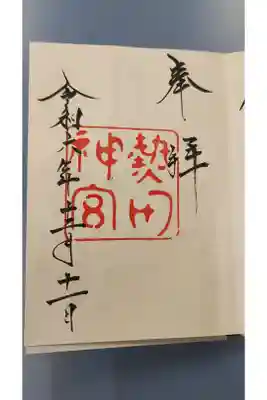 奉拝
熱田
神宮
令和六年十二月十一日